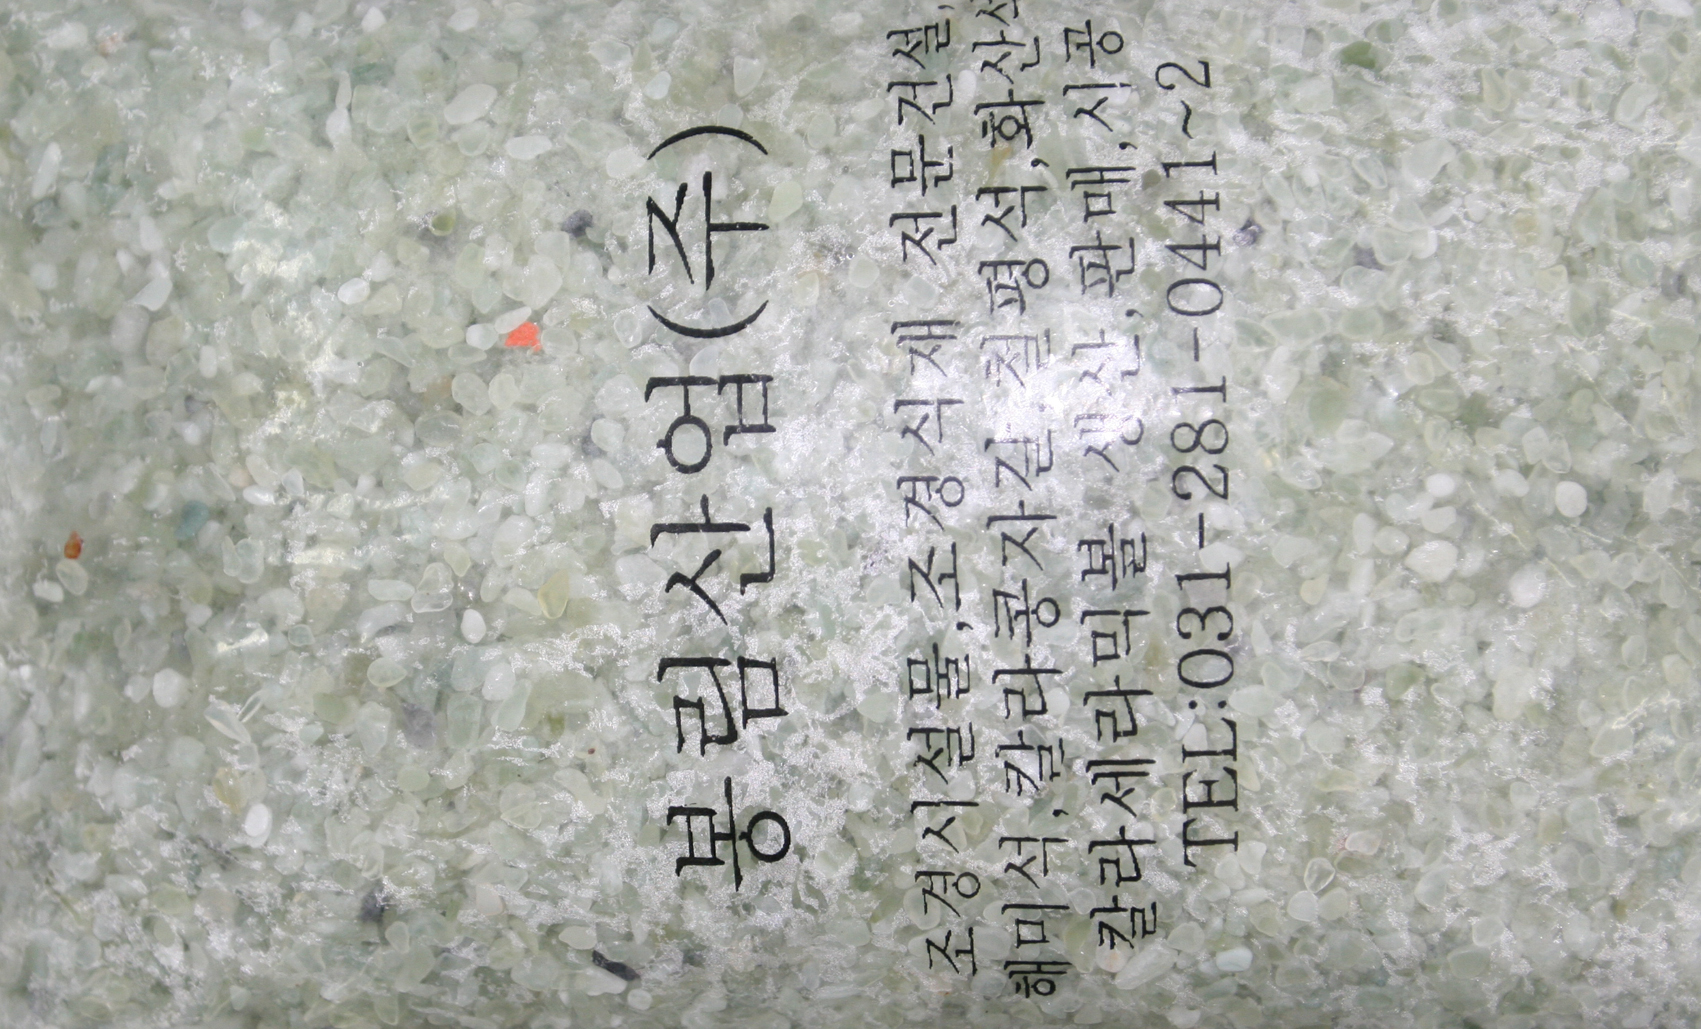 봉림산업(주)
조경시설물,조경식재 전문건설,
해미석,칼라콩자갈,철평석,화산석
칼라세라믹볼 생산,판매,시공
TEL:031-281-0441~2